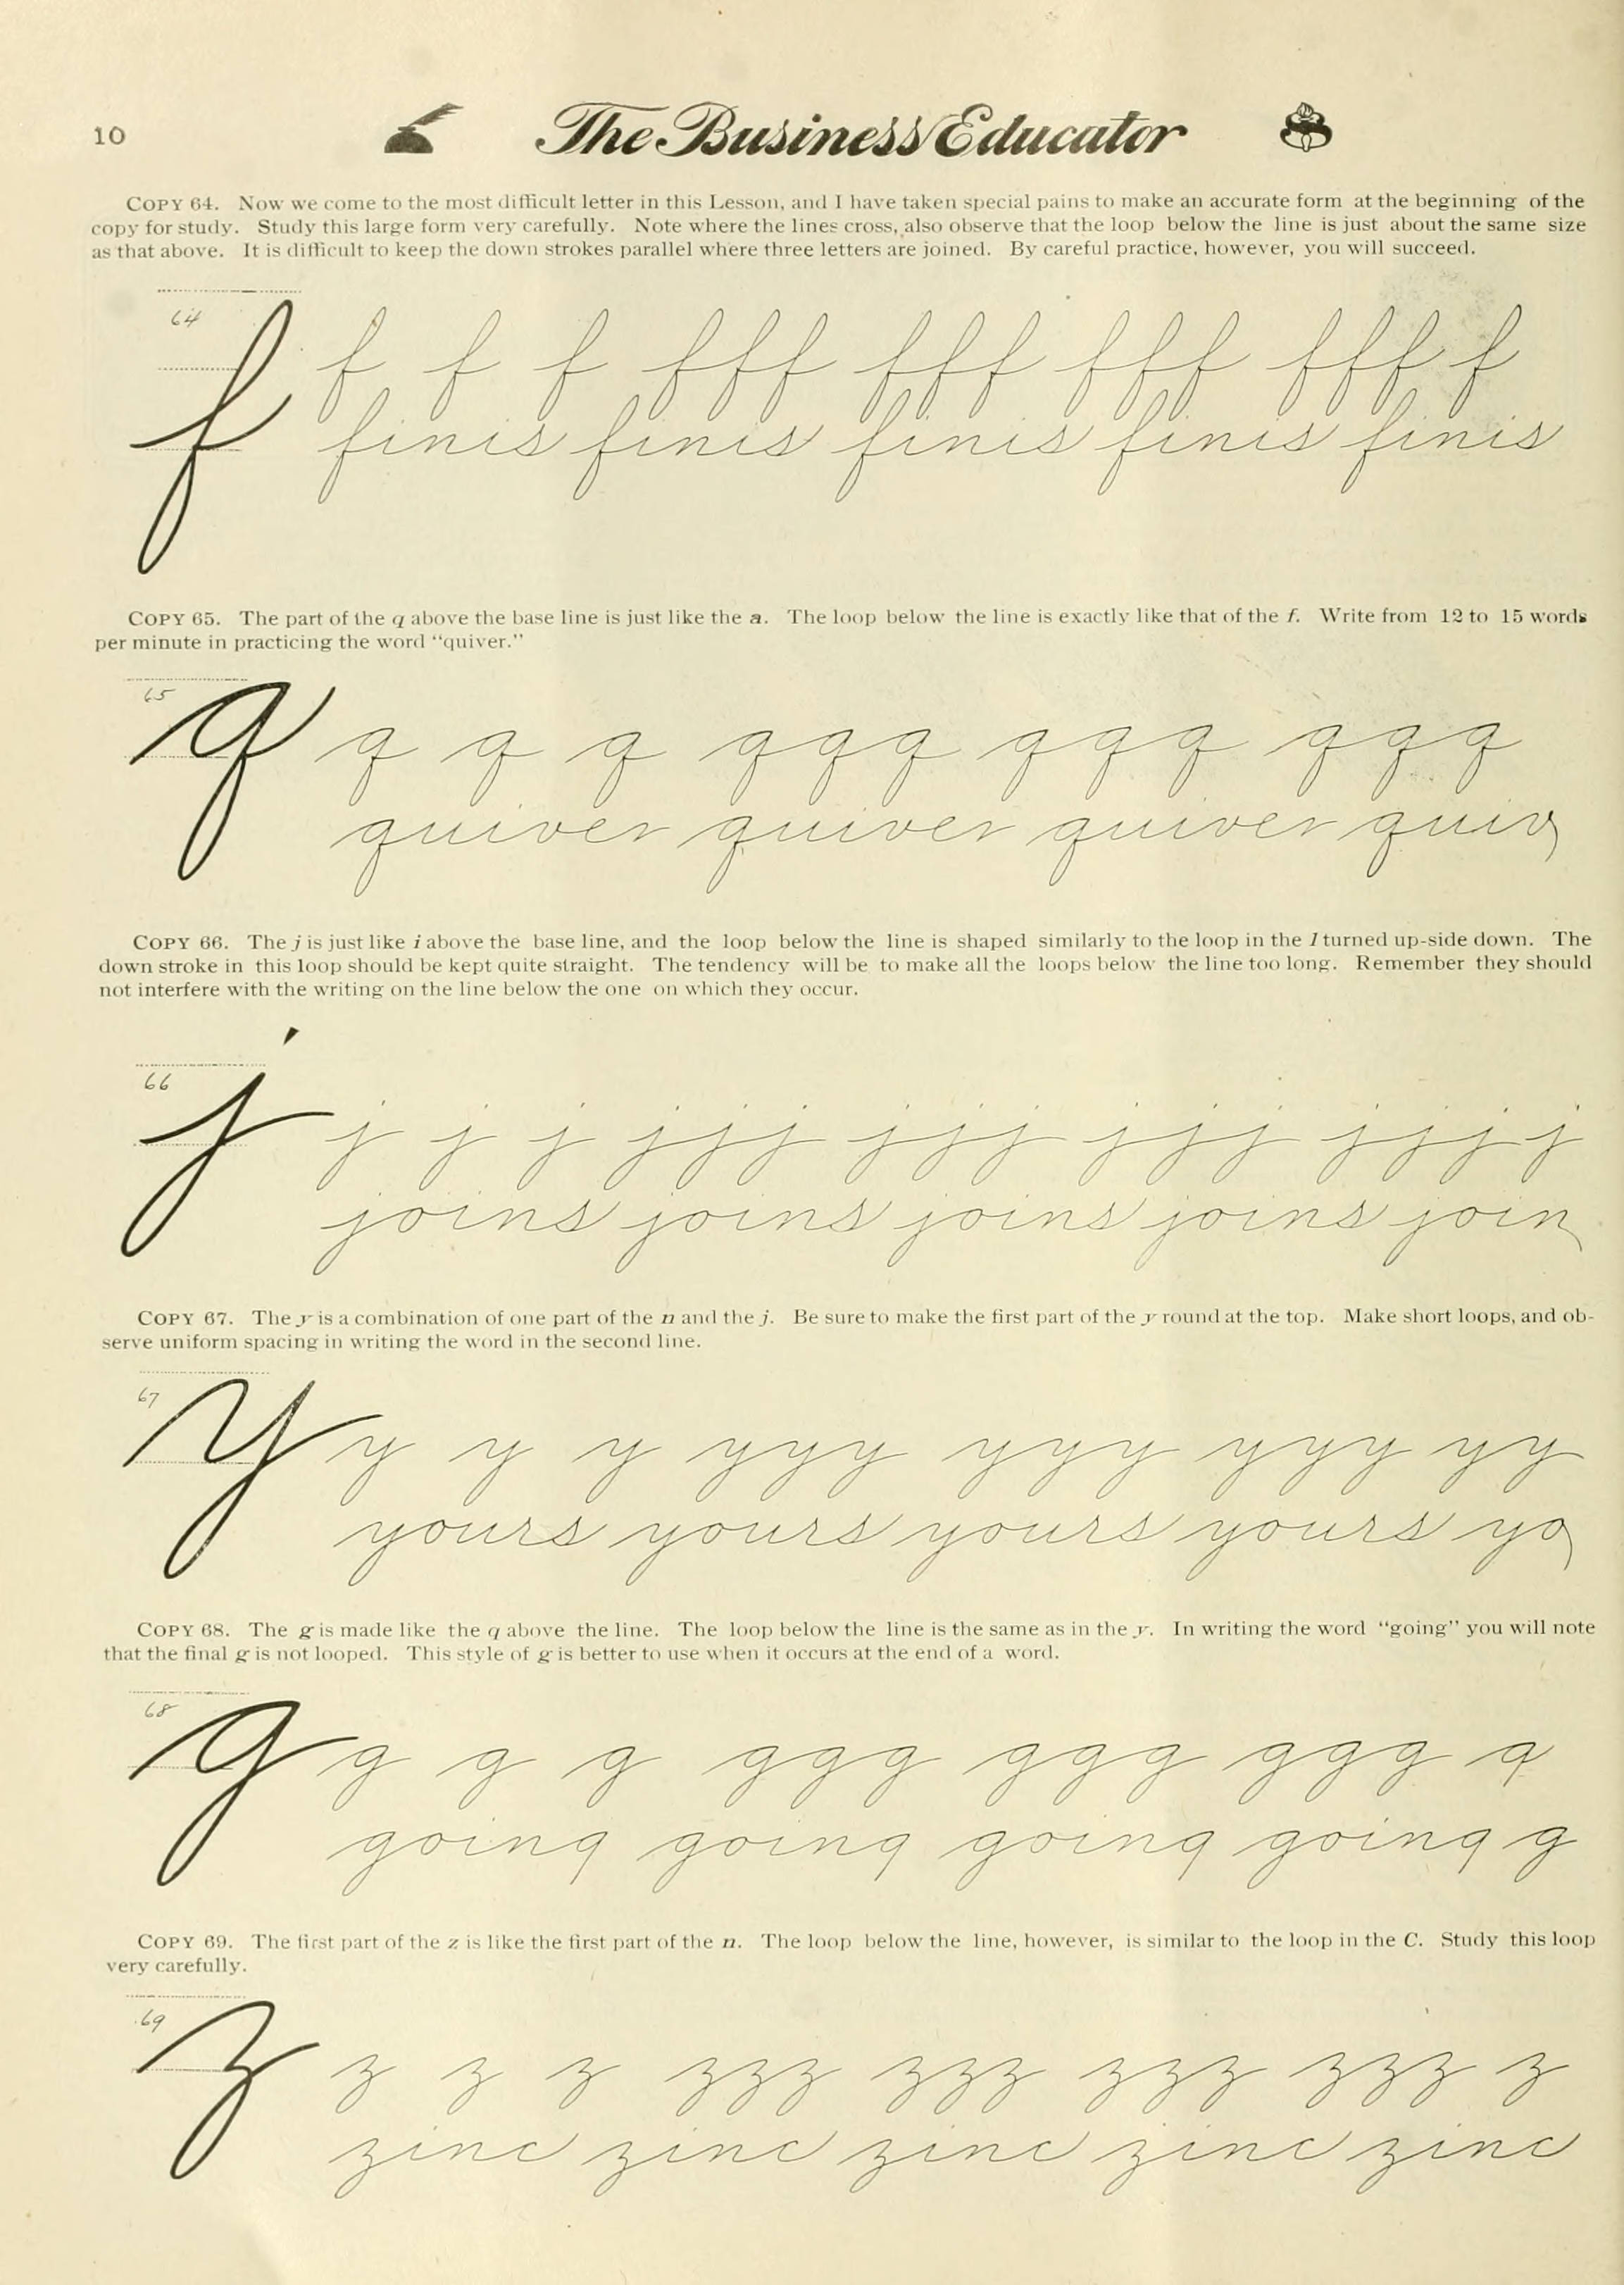 10
The Business Educator
COPY 64. Now we come to the most difficult letter in this Lesson, and I have taken special pains to make an accurate form at the beginning of the
copy for study. Study this large form very carefully. Note where the lines cross, also observe that the loop below the line is just about the same size
as that above. It is difficult to keep the down strokes parallel where three letters are joined. By careful practice, however, you will succeed.
64
f f f f fff fff fff fff f
finis finis finis finis finis
COPY 65. The part of the q above the base line is just like the a. The loop below the line is exactly like that of the f. Write from 12 to 15 words
per minute in practicing the word "quiver."
65
q q q q qqq qqq qqq
quiver quiver quiver quiv
COPY 66. The j is just like i above the base line, and the loop below the line is shaped similarly to the loop in the l turned up-side down. The
down stroke in this loop should be kept quite straight. The tendency will be to make all the loops below the line too long. Remember they should
not interfere with the writing on the line below the one on which they occur.
66
j j j j jjj jjj jjj jjj j
joins joins joins joins join
COPY 67. The y is a combination of one part of the n and the j. Be sure to make the first part of the y round at the top. Make short loops, and ob-
serve uniform spacing in writing the word in the second line.
67
y y y y yyy yyy yyy yy
yours yours yours yours yo
COPY 68. The g is made like the q above the line. The loop below the line is the same as in the y. In writing the word "going" you will note
that the final g is not looped. This style of g is better to use when it occurs at the end of a word.
68
g g g g ggg ggg ggg g
going going going going g
COPY 69. The first part of the z is like the first part of the n. The loop below the line, however, is similar to the loop in the C. Study this loop
very carefully.
69
z z z z zzz zzz zzz zzz z
zinc zinc zinc zinc zinc